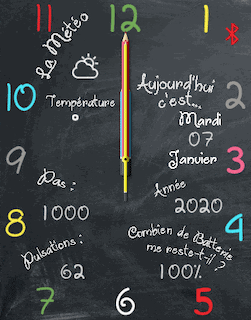 11 12 1
La Météo
10
Température
°
Aujourd'hui
c'est...
Mardi
2
07
Janvier
9
3
Pas :
1000
Année
2020
8
4
Pulsations :
62
Combien de Batterie
me reste-t-il ?
100%
7
6
5